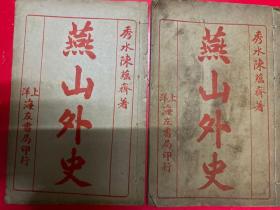 秀水陳蘊齋著
燕山外史
上洋海左書局印行
秀水陳蘊齋著
燕山外史
上洋海左書局印行